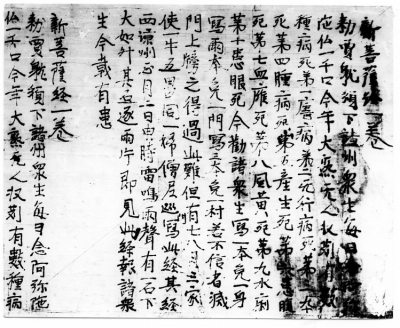 新菩薩經一卷
勅賈躭頒下諸州衆生每日念
陁仏一千口今年大熟无人收刈有數
種病死第一虐病死第二天行病死第三卒
死第四腫病死第五產生死第六患腹
死第七血癰死第八風黃死第九水痢
第十患眼死今勸諸衆生寫一本免一身
寫兩本免一門寫三本免一村若不信者滅
門上牓之得過此難但看七八月三家
使一牛五男同一婦僧尼巡寫此經其經
西涼州正月二日中時雷鳴雨聲有一石下
大如斗其石遂兩片即見此經報諸衆
生今載有患
新菩薩經一卷
勅賈躭頒下諸州衆生每日念阿弥陁
仏一千口今年大熟无人收刈有數種病